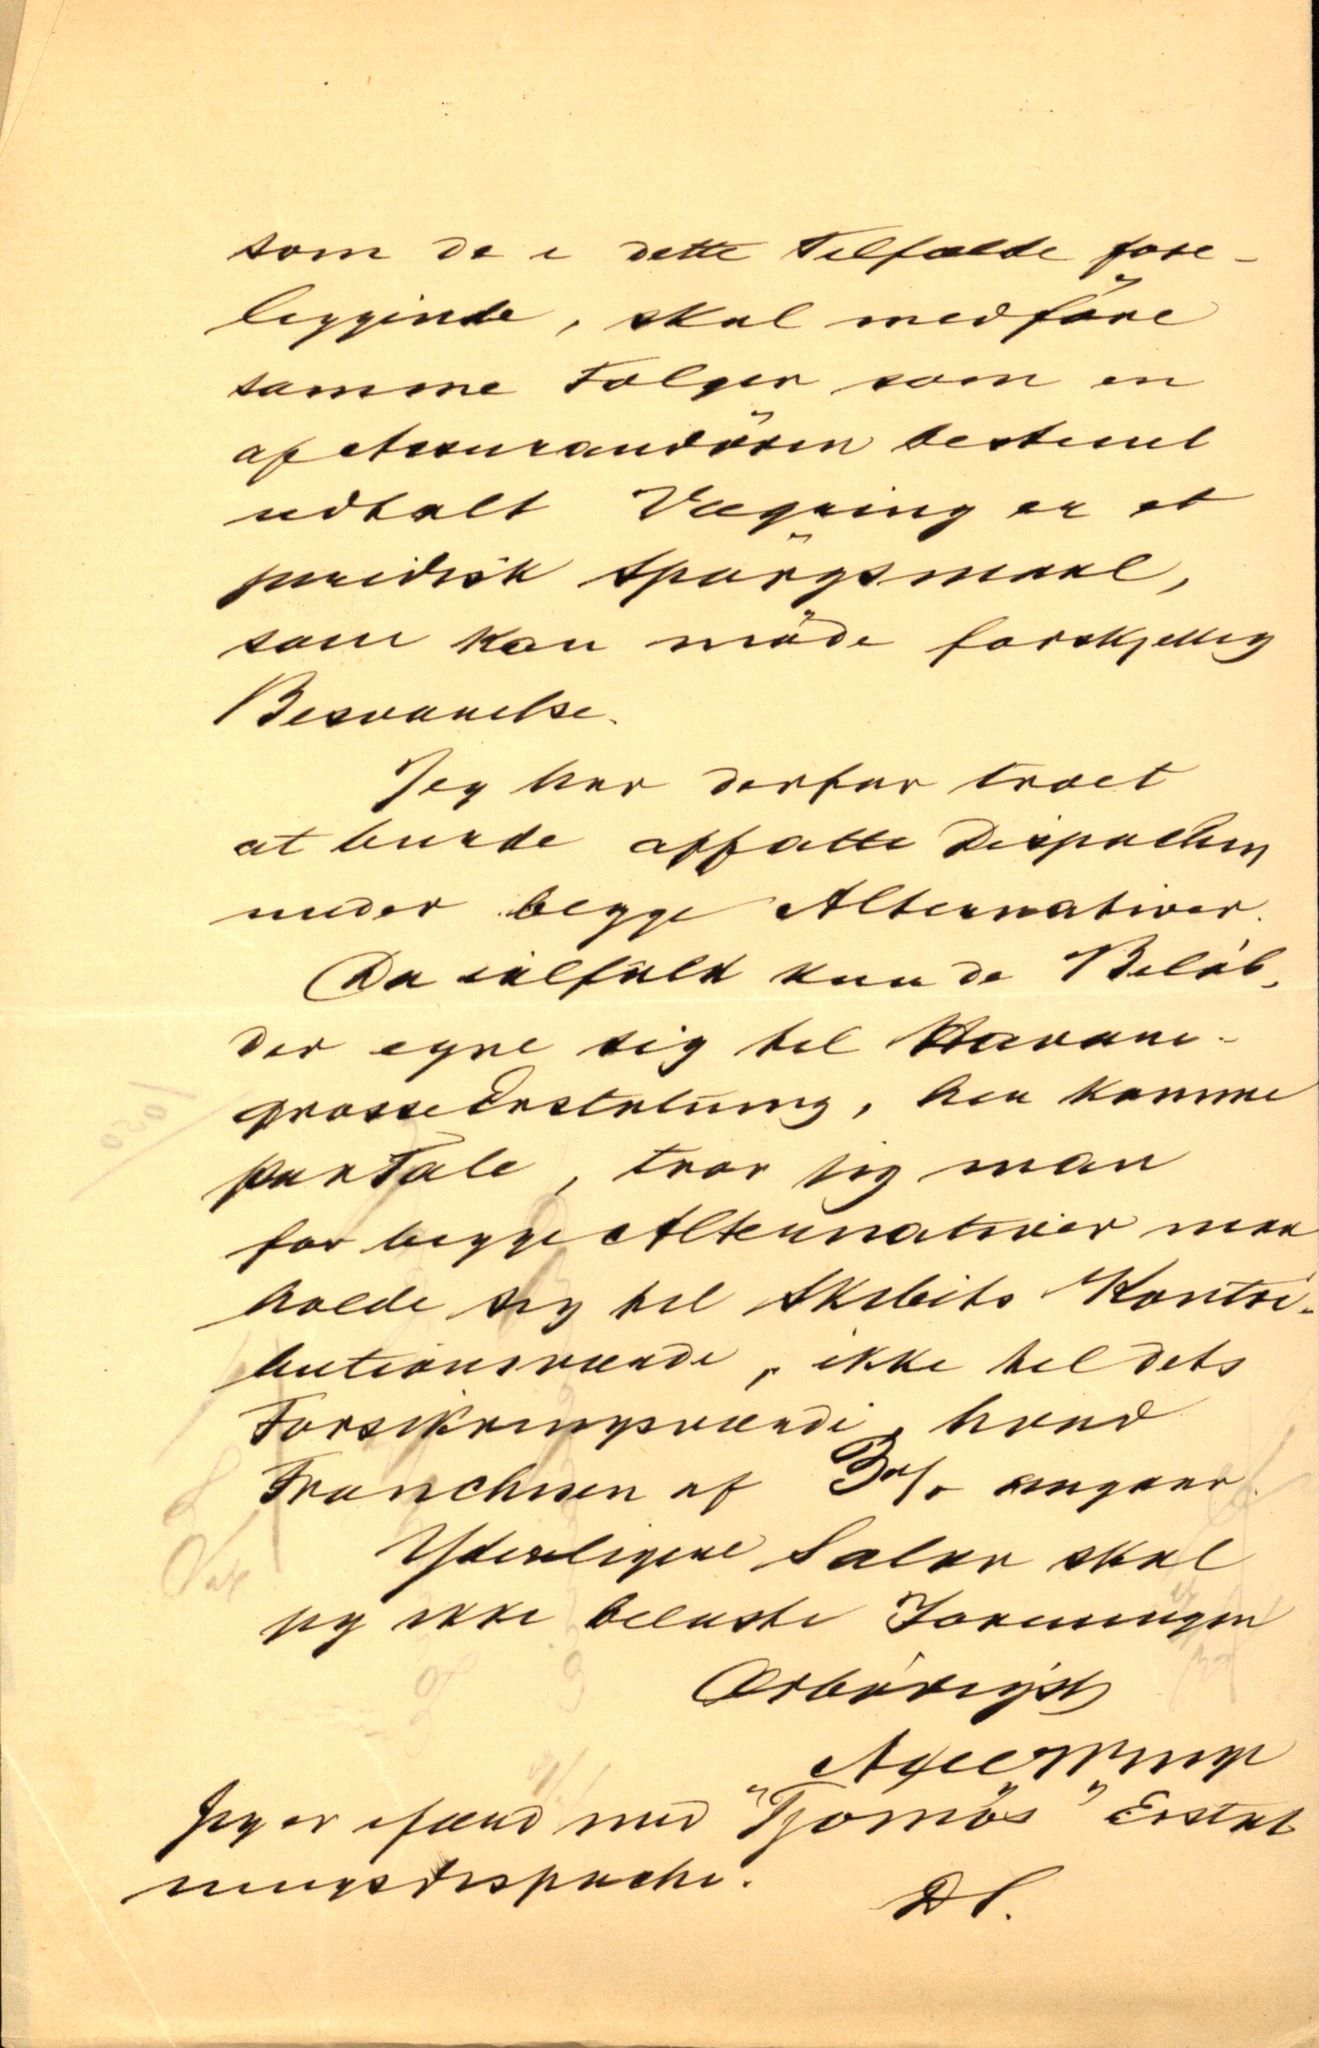 som de i dette Tilfælde fore-
liggende, skal medføre
samme Følger som en
af Assurandøren bestemt
udtalt Vægring er et
juridisk Spørgsmaal,
som kan møde forskjellig
Besvarelse.
Jeg har derfor troet
at burde affatte Dispachen
under begge Alternativer.
Da ialfald kun de Beløb,
der egne sig til Havari-
grosse Erstatning, her komme
paa Tale, tror jeg man
for begge Alternativer maa
holde sig til Skibets Kontri-
butionsværdi, ikke til dets
Forsikringsværdi, hvad
Franchisen af 3% angaar.
Yderligere Salær skal
jeg ikke belaste Foreningen
Ærbødigst
Axel Winge
Jeg er ifærd med "Tjømøs" Erstat
ningsdispache.
DS.